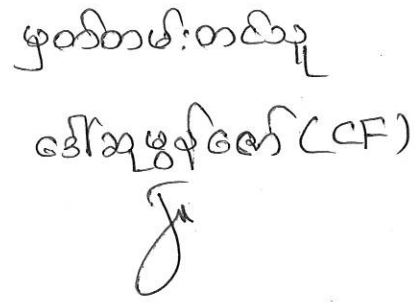 မှတ်တမ်းတင်သူ
ဒေါ်ဆုမွန်ဇော် (CF)